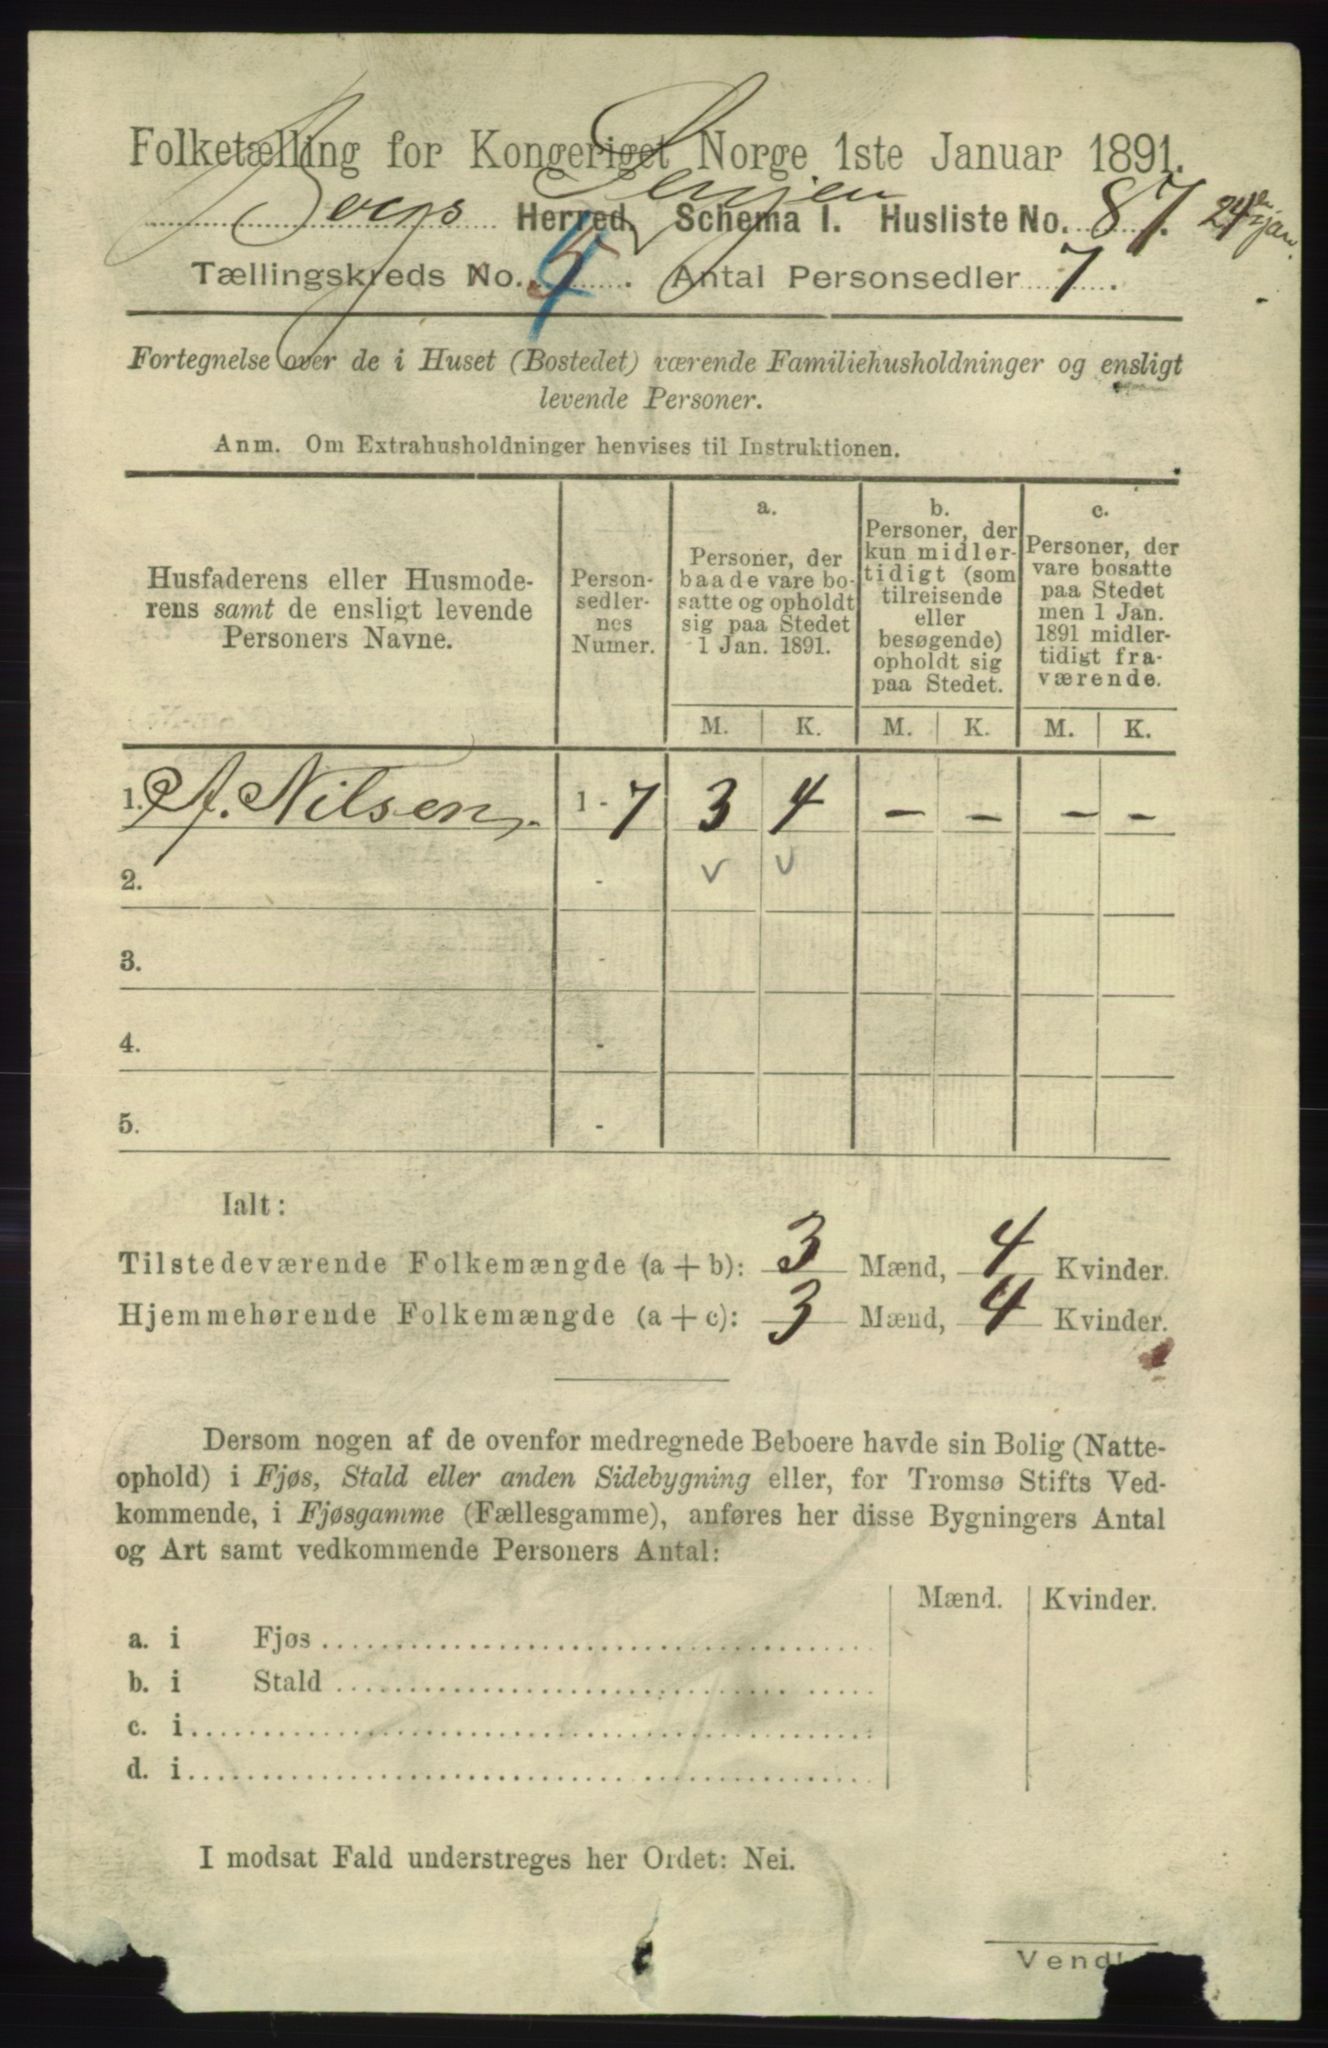 Folketælling for Kongeriget Norge 1ste Januar 1891.
Bergs Herred. Schema I. Husliste No. 87. 24de Jan.
Tællingskreds No. 4. Antal Personsedler 7.
Fortegnelse over de i Huset (Bostedet) værende Familiehusholdninger og ensligt
levende Personer.
Anm. Om Extrahusholdninger henvises til Instruktionen.
Husfaderens eller Husmode-
rens samt de ensligt levende
Personers Navne.
Person-
sedler-
nes
Numer.
a.
Personer, der
baade vare bo-
satte og opholdt
sig paa Stedet
1 Jan. 1891.
b.
Personer, der
kun midler-
tidigt (som
tilreisende
eller
besøgende)
opholdt sig
paa Stedet.
c.
Personer, der
vare bosatte
paa Stedet
men 1 Jan.
1891 midler-
tidigt fra-
værende.
M. K. M. K. M. K.
1. A. Nilsen. 1 - 7 3 4 – – – –
2. - v v
3. -
4. -
5. -
Ialt:
Tilstedeværende Folkemængde (a + b): 3 Mænd, 4 Kvinder.
Hjemmehørende Folkemængde (a + c): 3 Mænd, 4 Kvinder.
Dersom nogen af de ovenfor medregnede Beboere havde sin Bolig (Natte-
ophold) i Fjøs, Stald eller anden Sidebygning eller, for Tromsø Stifts Ved-
kommende, i Fjøsgamme (Fællesgamme), anføres her disse Bygningers Antal
og Art samt vedkommende Personers Antal:
Mænd. Kvinder.
a. i Fjøs
b. i Stald
c. i
d. i
I modsat Fald understreges her Ordet: Nei.